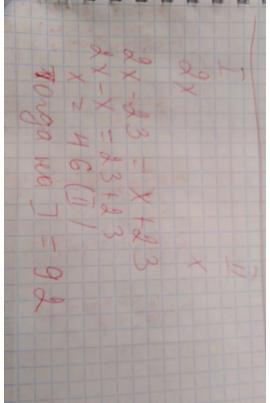 I II
2x x
2x - 23 = x + 23
2x - x = 23 + 23
x = 46 (II)
Тогда на I = 92